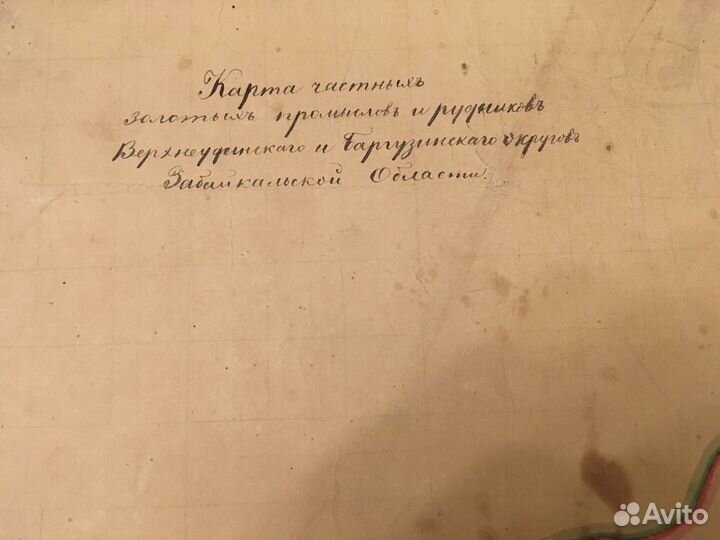 Карта частныхъ
золотыхъ промысловъ и рудниковъ
Верхнеудинскаго и Баргузинскаго округовъ
Забайкальской Области.
Avito